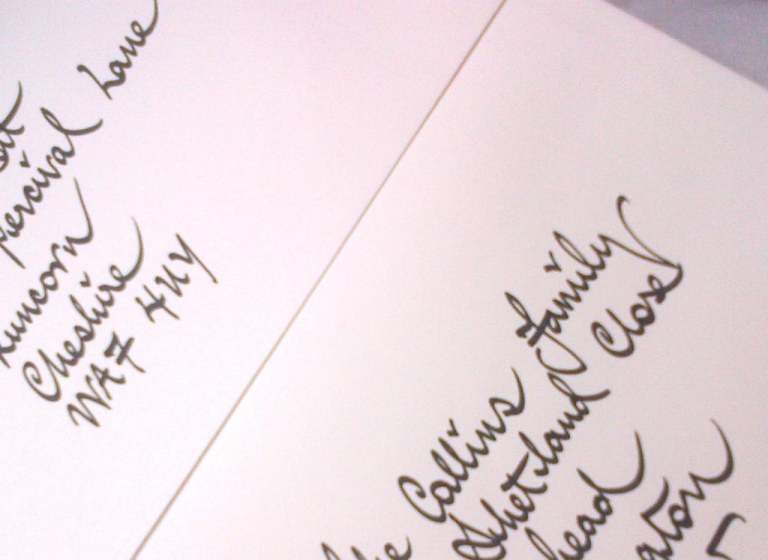 Percival Lane
Runcorn
Cheshire
WA7 4UY
The Collins Family
Shetland Close
head